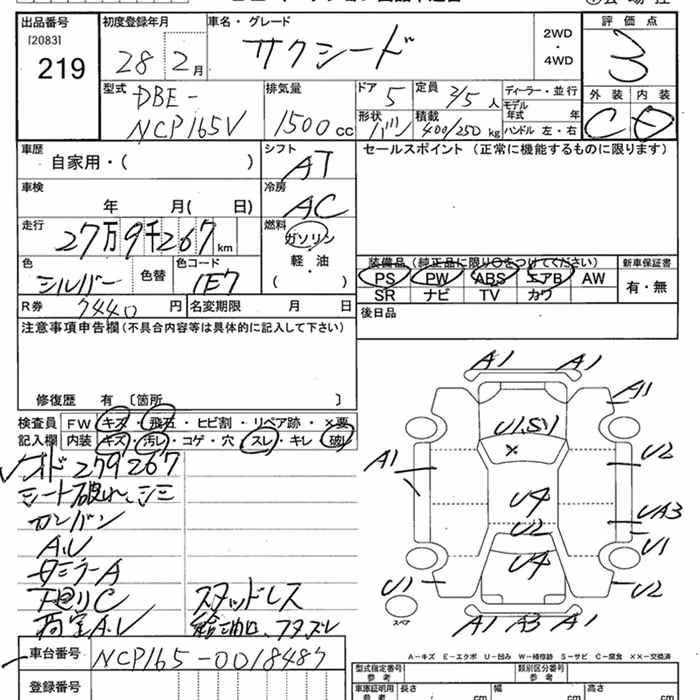 出品番号
[2083]
219
初度登録年月
28 2月
車名・グレード
サクシード
2WD
・
4WD
評価点
3
外装 内装
C E
型式
DBE-
NCP165V
排気量
1500cc
ドア 5
形状 バン
定員 2/5人
積載 400/250kg
ディーラー・並行
モデル
年式 年
ハンドル 左・右
車歴
自家用・( )
シフト
AT
セールスポイント(正常に機能するものに限ります)
車検
年 月( 日)
冷房
AC
走行
27万9千267km
燃料
ガソリン
軽・油
・
( )
色
シルバー
色替
色コード
1E7
装備品(純正品に限り○をつけてください)
PS PW ABS エアB AW
SR ナビ TV カワ
新車保証書
有・無
R券 7440円
名変期限 月 日
後日品
注意事項申告欄(不具合内容等は具体的に記入して下さい)
修復歴 有〔箇所 〕
検査員
記入欄
FW キズ・飛石・ヒビ割・リペア跡・×要
内装 キズ・汚レ・コゲ・穴・スレ・キレ・破レ
オド279267
シート破れ、シミ
カンバン
A.U
下廻りC
スタッドレス
荷室A.U
車台番号
登録番号
A1 A1
A1
U1.S1
×
A1
U2
U4
U2
UA3
U4
U1
U1
U2
スペア
A1 A3 A1
A-キズ E-エクボ U-凹み W-補修跡 S-サビ C-腐食 ××-交換済
型式指定番号
参考
類別区分番号
参考
車庫証明用
参考
長さ cm
幅 cm
高さ cm